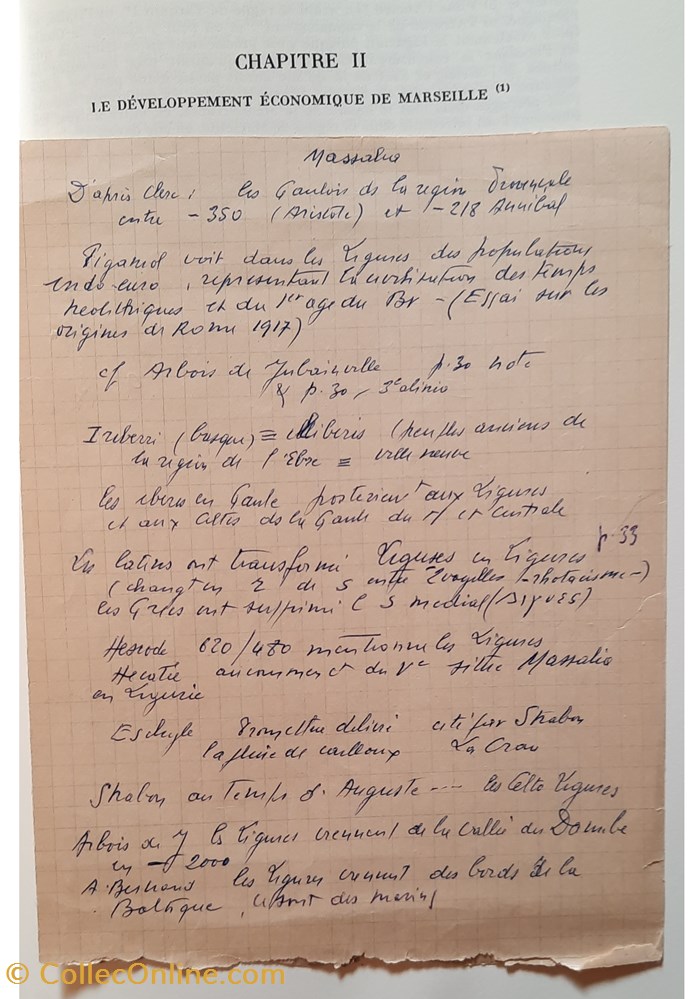 CHAPITRE II
LE DÉVELOPPEMENT ÉCONOMIQUE DE MARSEILLE (1)
Massalia
D'après Clerc : les Gaulois ds la région Provençale
entre -350 (Aristote) et -218 Annibal
Piganiol voit dans les Ligures des populations
indo-euro, représentant la civilisation des temps
néolithiques et du 1er age du Br - (Essai sur les
origines de Rome 1917)
cf Arbois de Jubainville p.30 note
& p.30, 3e alinéa
Ireberri (basque) ≡ Iliberis (peuples anciens de
la région de l'Ebre ≡ ville neuve
les ibères en Gaule postérieurt aux Ligures
et aux Celtes de la Gaule du et Centrale
p.33
Les latins ont transformé Liguses en Ligures
(changt en r de s entre 2 voyelles - rhotacisme -)
les Grecs ont supprimé l S médial (Λιγυες)
Hésiode 620/480 mentionne les Ligures
Hecatée au commenct du Ve situe Massalia
en Ligurie
Eschyle Prométhée délivré cité par Strabon
la plaine de cailloux La Crau
Strabon au Temps d'Auguste --- les Celto Ligures
Arbois de J les Ligures viennent de la vallée du Danube
en -2000
A. Bertrand les Ligures viennent des bords de la
Baltique, ce sont des marins
© CollecOnline.com